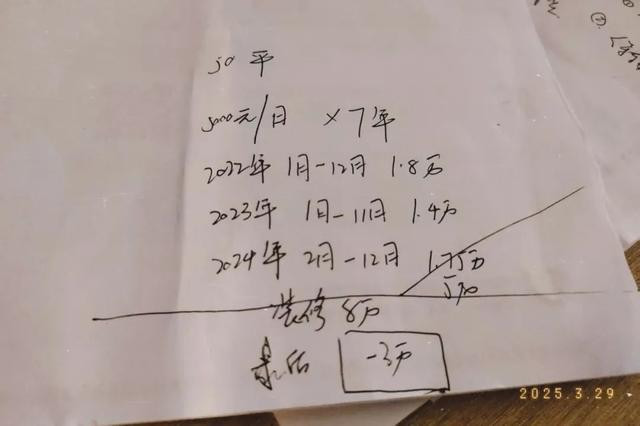 50 平
5000元/月 ×7年
2022年 1月-12月 1.8万
2023年 1月-11月 1.4万
2024年 2月-12月 1.75万
装修 8万
最后 -3万
2025.3.29